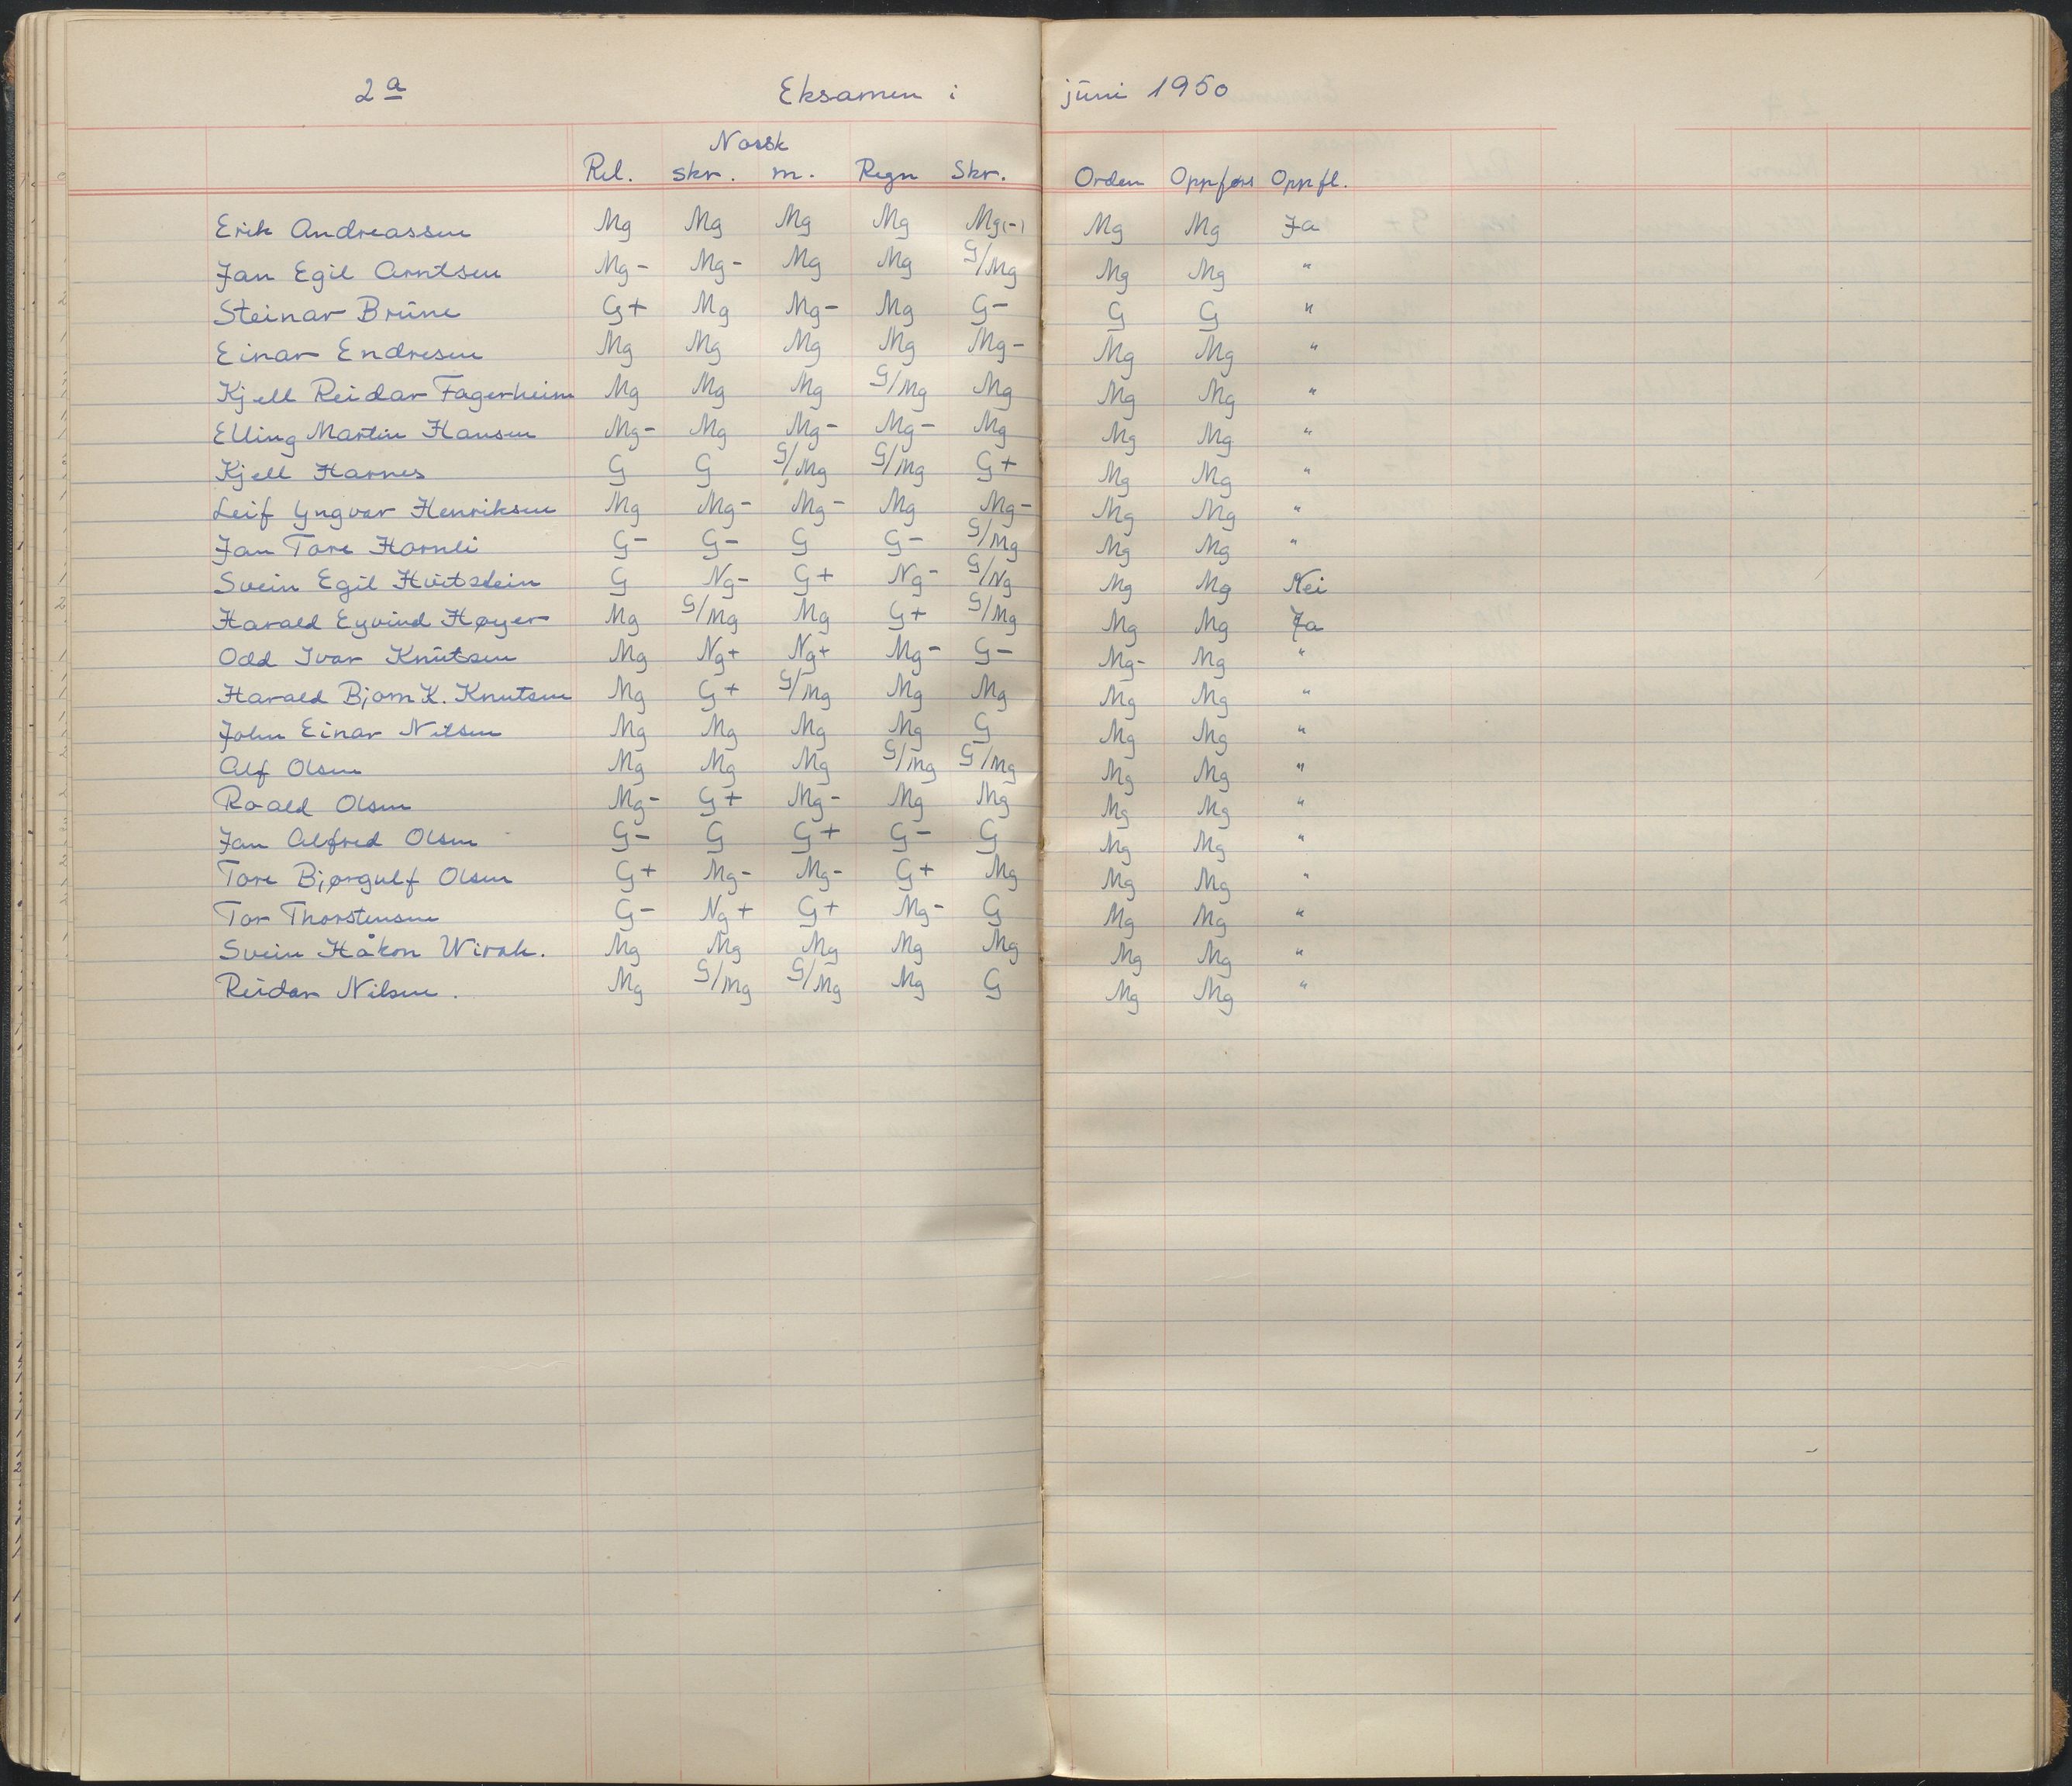 2a Eksamen i juni 1950
Norsk
Rel. skr. m. Regn Skr. Orden Oppførs Oppfl.
Erik Andreassen Mg Mg Mg Mg Mg(-) Mg Mg Ja
Jan Egil Arntsen Mg- Mg- Mg Mg G/Mg Mg Mg "
Steinar Brune G+ Mg Mg- Mg G- G G "
Einar Endresen Mg Mg Mg Mg Mg- Mg Mg "
Kjell Reidar Fagerheim Mg Mg Mg G/Mg Mg Mg Mg "
Elling Martin Hansen Mg- Mg Mg- Mg- Mg Mg Mg "
Kjell Harnes G G G/Mg G/Mg G+ Mg Mg "
Leif Yngvar Henriksen Mg Mg- Mg- Mg Mg- Mg Mg "
Jan Tore Hornli G- G- G G- G/Mg Mg Mg "
Svein Egil Hvitstein G Ng- G+ Ng- G/Ng Mg Mg Nei
Harald Eyvind Høyer Mg G/Mg Mg G+ G/Mg Mg Mg Ja
Odd Ivar Knutsen Mg Ng+ Ng+ Mg- G- Mg- Mg "
Harald Bjørn K. Knutsen Mg G+ G/Mg Mg Mg Mg Mg "
John Einar Nilsen Mg Mg Mg Mg G Mg Mg "
Alf Olsen Mg Mg Mg G/Mg G/Mg Mg Mg "
Roald Olsen Mg- G+ Mg- Mg Mg Mg Mg "
Jan Alfred Olsen G- G G+ G- G Mg Mg "
Tore Bjørgulf Olsen G+ Mg- Mg- G+ Mg Mg Mg "
Tor Thorstensen G- Ng+ G+ Mg- G Mg Mg "
Svein Håkon Wirak. Mg Mg Mg Mg Mg Mg Mg "
Reidar Nilsen. Mg G/Mg G/Mg Mg G Mg Mg "